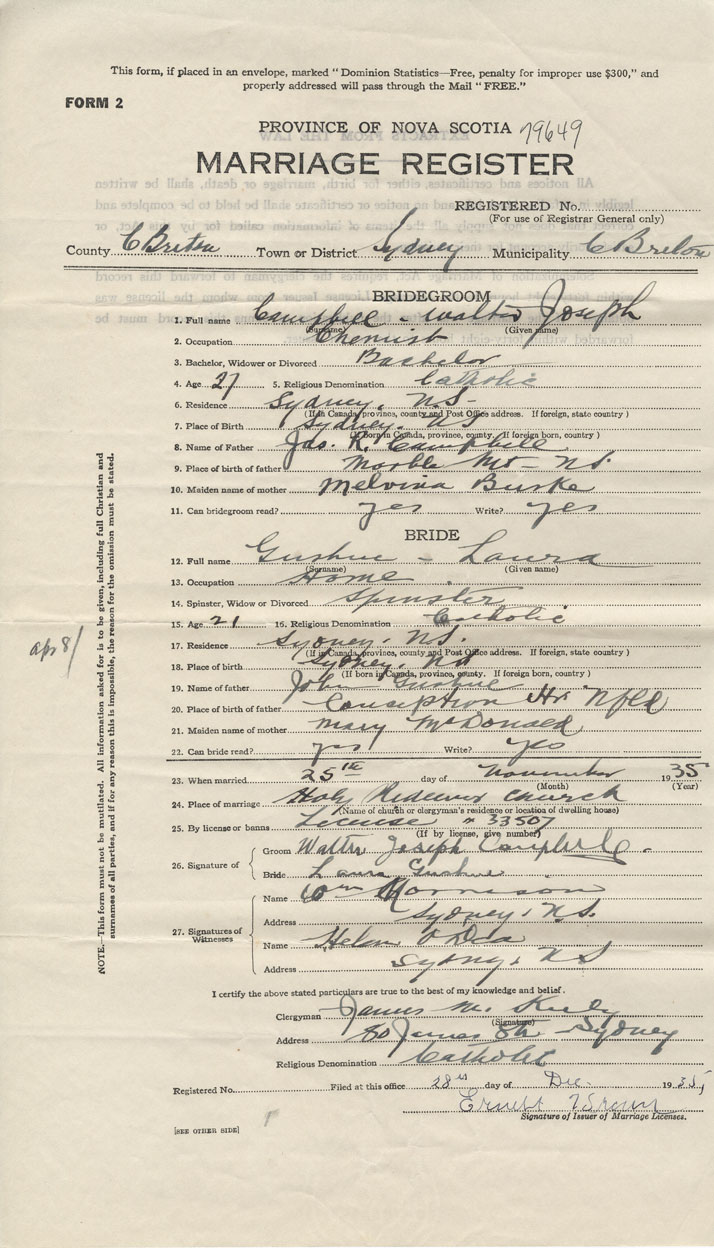 This form, if placed in an envelope, marked "Dominion Statistics—Free, penalty for improper use $300," and
properly addressed will pass through the Mail "FREE."
FORM 2
PROVINCE OF NOVA SCOTIA 79649
MARRIAGE REGISTER
REGISTERED No.
(For use of Registrar General only)
County C Breton Town or District Sydney Municipality C Breton
BRIDEGROOM
1. Full name Campbell - Walter Joseph
(Surname) (Given name)
2. Occupation Chemist
3. Bachelor, Widower or Divorced Bachelor
4. Age 27 5. Religious Denomination Catholic
6. Residence Sydney, N.S-
(If in Canada, province, county and Post Office address. If foreign, state country)
7. Place of Birth Sydney. NS
(If born in Canada, province, county. If foreign born, country)
8. Name of Father Jas. R. Campbell
9. Place of birth of father Marble Mt - N.S.
10. Maiden name of mother Melvina Burke
11. Can bridegroom read? yes Write? yes
BRIDE
12. Full name Gushue - Laura
(Surname) (Given name)
13. Occupation Home
14. Spinster, Widow or Divorced Spinster
15. Age 21 16. Religious Denomination Catholic
17. Residence Sydney. N.S.
(If in Canada, province, county and Post Office address. If foreign, state country)
18. Place of birth Sydney. NS
(If born in Canada, province, county. If foreign born, country)
19. Name of father John Gushue
20. Place of birth of father Conception Hr. Nfld
21. Maiden name of mother Mary McDonald
22. Can bride read? yes Write? yes
23. When married 25th day of November 1935
(Month) (Year)
24. Place of marriage Holy Redeemer Church
(Name of church or clergyman's residence or location of dwelling house)
25. By license or banns License " 33507
(If by license, give number)
26. Signature of Groom Walter Joseph Campbell.
Bride Laura Gushue
27. Signatures of Witnesses Name Wm Morrison
Address Sydney, N.S.
Name Helen O'Dea
Address Sydney, NS
I certify the above stated particulars are true to the best of my knowledge and belief.
Clergyman James M.
(Signature)
Address 80 James St. Sydney
Religious Denomination Catholic
Registered No. Filed at this office 28th day of Dec. 1935,
Ernest
Signature of Issuer of Marriage Licenses.
[SEE OTHER SIDE]
NOTE.—This form must not be mutilated. All information asked for is to be given, including full Christian and
surnames of all parties, and if for any reason this is impossible, the reason for the omission must be stated.
apr 8/